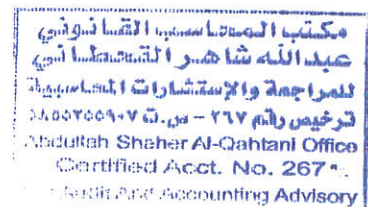 مكتب المحاسب القانوني
عبدالله شاهر القحطاني
للمراجعة والإستشارات المحاسبية
ترخيص رقم ٢٦٧ - س.ت
Abdullah Shaher Al-Qahtani Office
Certified Acct. No. 267
Audit And Accounting Advisory